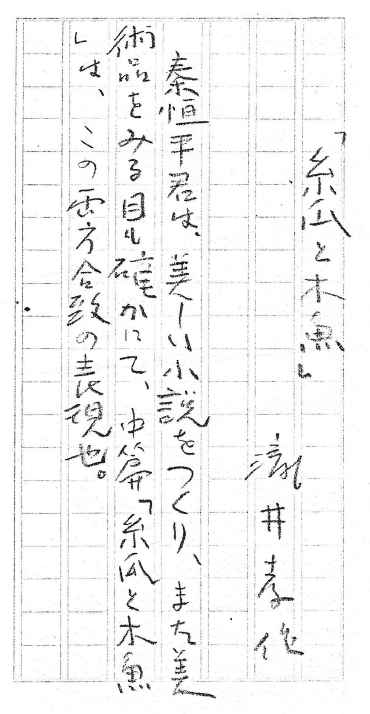 「糸瓜と木魚」
瀧井孝作
秦恒平君は、美しい小説をつくり、また美
術品をみる目も確かにて、中篇「糸瓜と木魚
」は、この両方合致の表現也。